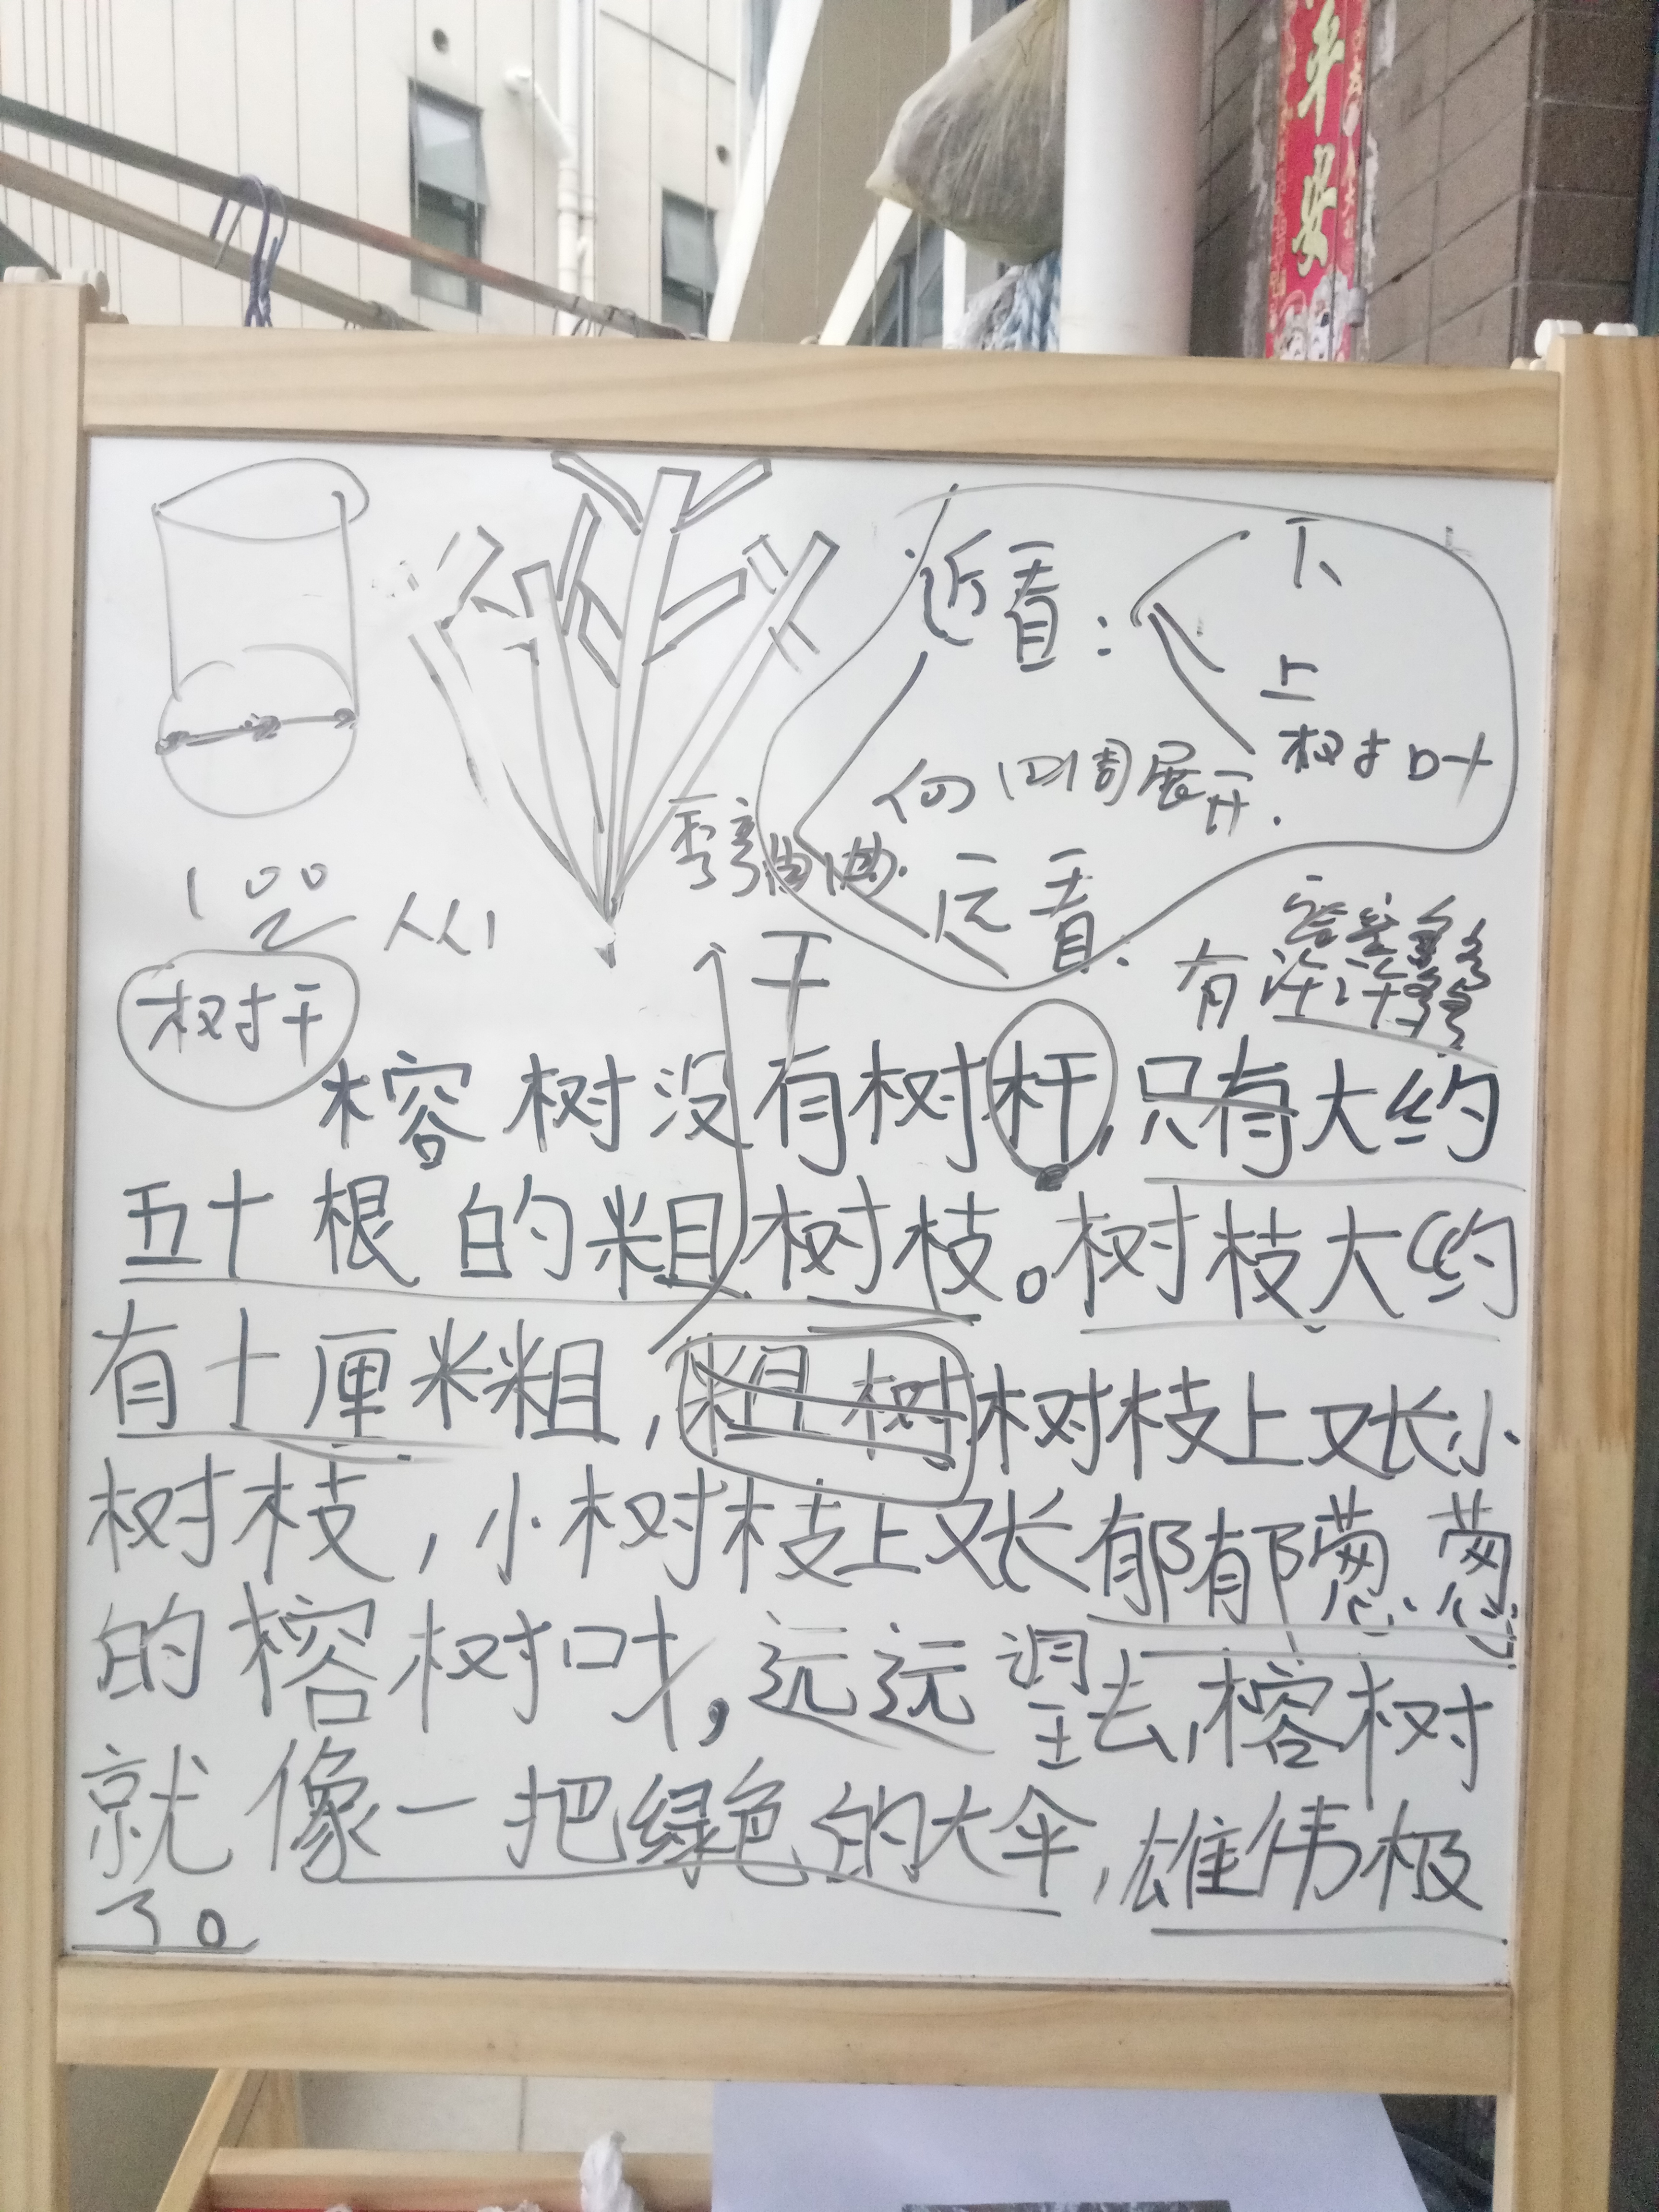 平安
近看：
下
上
树叶
向四周展开.
弯弯曲曲.
远看：
100
树干
干
有许许多多
榕树没有树杆,只有大约
五十根的粗树枝。树枝大约
有十厘米粗,粗树树枝上又长小
树枝,小树枝上又长郁郁葱葱
的榕树叶,远远望去,榕树
就像一把绿色的大伞,雄伟极
了。